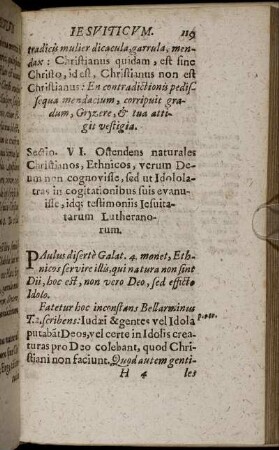 IESVITICVM. 119
tradicis mulier dicacula, garrula, men-
dax: Christianus quidam, est sine
Christo, id est, Christianus non est
Christianus: En contradictionis pedis-
sequa mendacium, corripuit gra-
dum, Gryzere, & tua atti-
git vestigia.
Sectio. VI. Ostendens naturales
Christianos, Ethnicos, verum De-
um non cognovisse, sed ut Idolola-
tras in cogitationibus suis evanu-
isse, idq; testimoniis Iesuita-
tarum Lutherano-
rum.
PAulus disertè Galat. 4. monet, Eth-
nicos servire illis, qui natura non sint
Dii, hoc est, non vero Deo, sed efficto
Idolo.
Fatetur hoc inconstans Bellarminus
T. 2. scribens: Iudæi & gentes vel Idola
putabāt Deos, vel certè in Idolis crea-
turas pro Deo colebant, quod Chri-
stiani non faciunt. Quod autem genti-
H 4 les